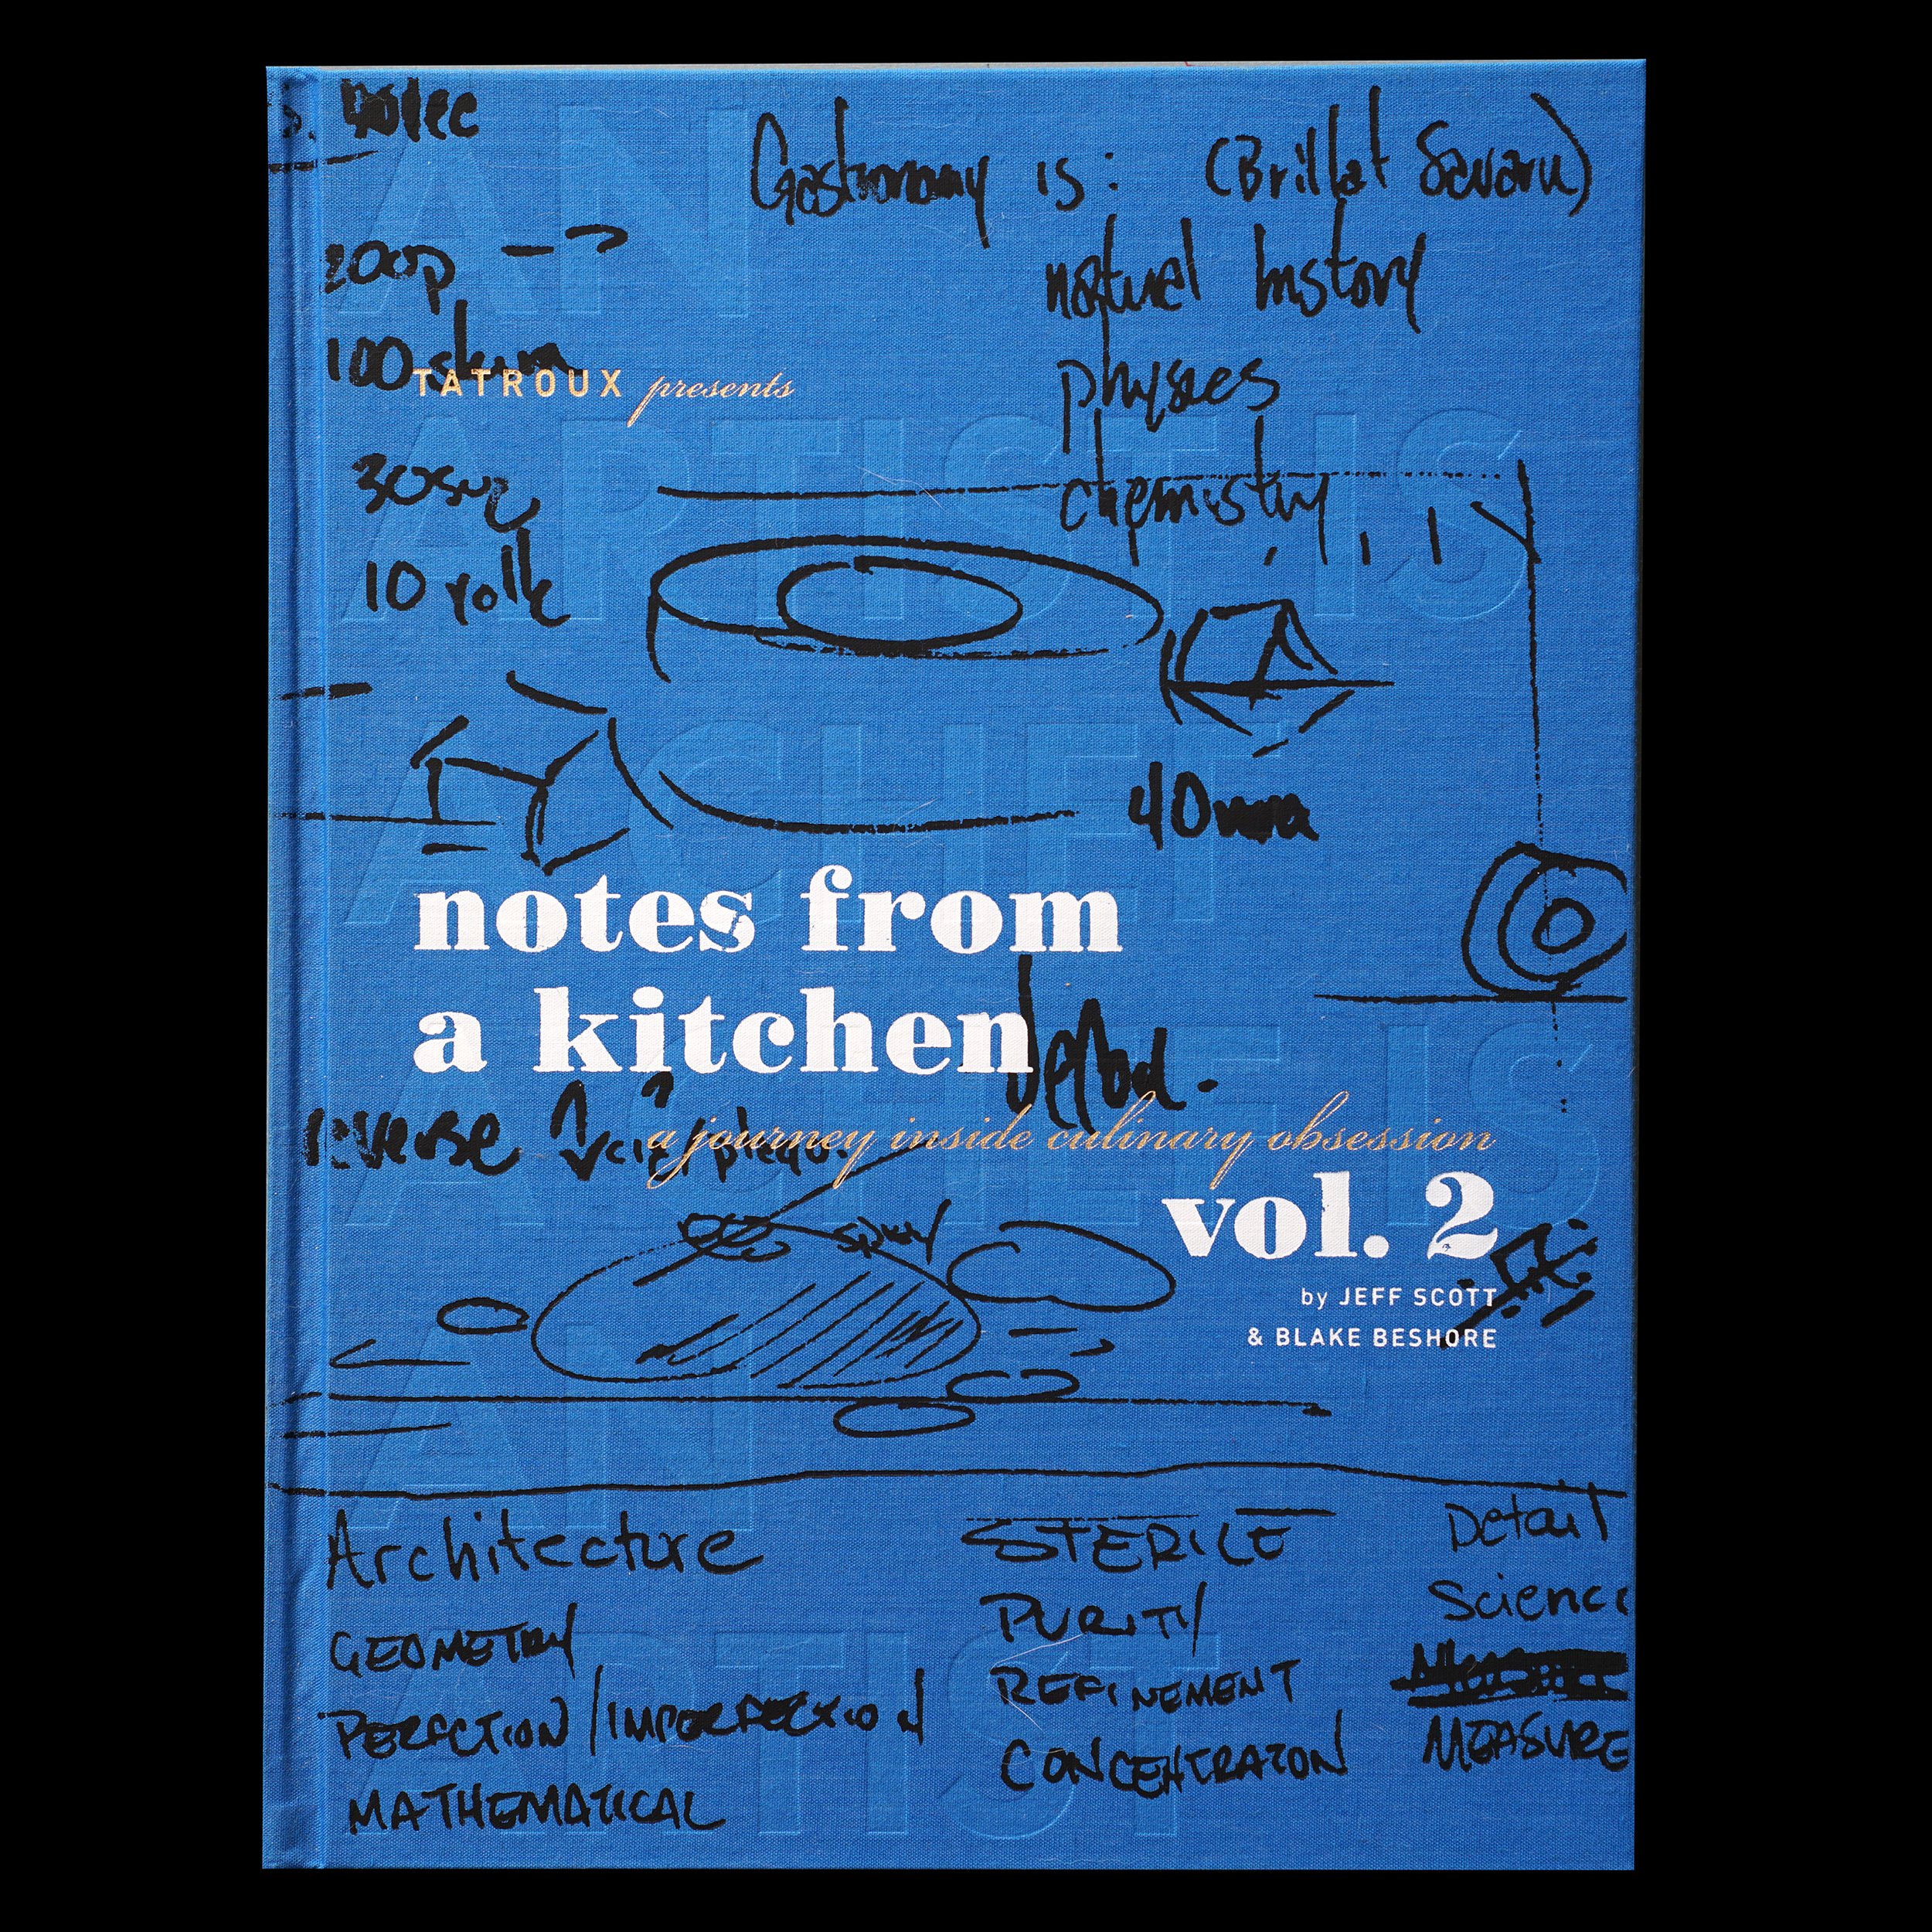 Gastronomy is: (Brillat Savarin)
natural history
physics
chemistry
200p
100 skim
TATROUX presents
10 yolk
AN
ARTIST IS
A CHEF
A CHEF IS
AN
ARTIST
notes from
a kitchen
reverse
a journey inside culinary obsession
vol. 2
by JEFF SCOTT
& BLAKE BESHORE
spray
Architecture
GEOMETRY
PERFCTION/IMPERFECXION
MATHEMATICAL
STERILE
PURITY
REFINEMENT
CONCENTRATON
Detail
Scienc
MEASURE